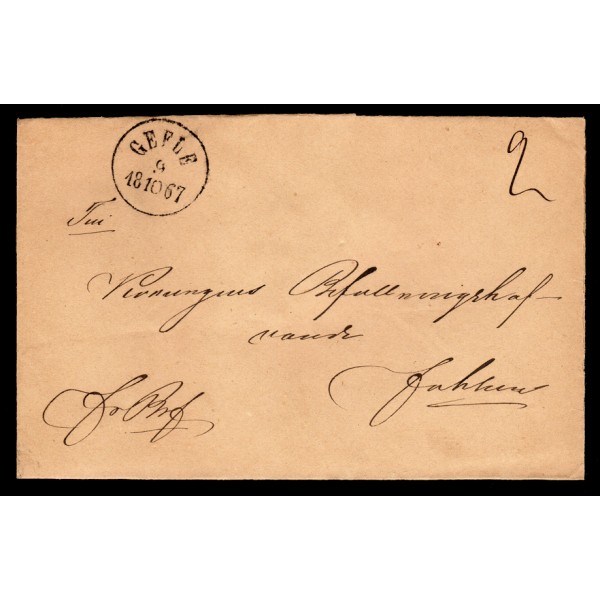 GEFLE
9
18 10 67
2
Till
Konungens Befallningshaf-
vande
Fahlun
Fr Bref